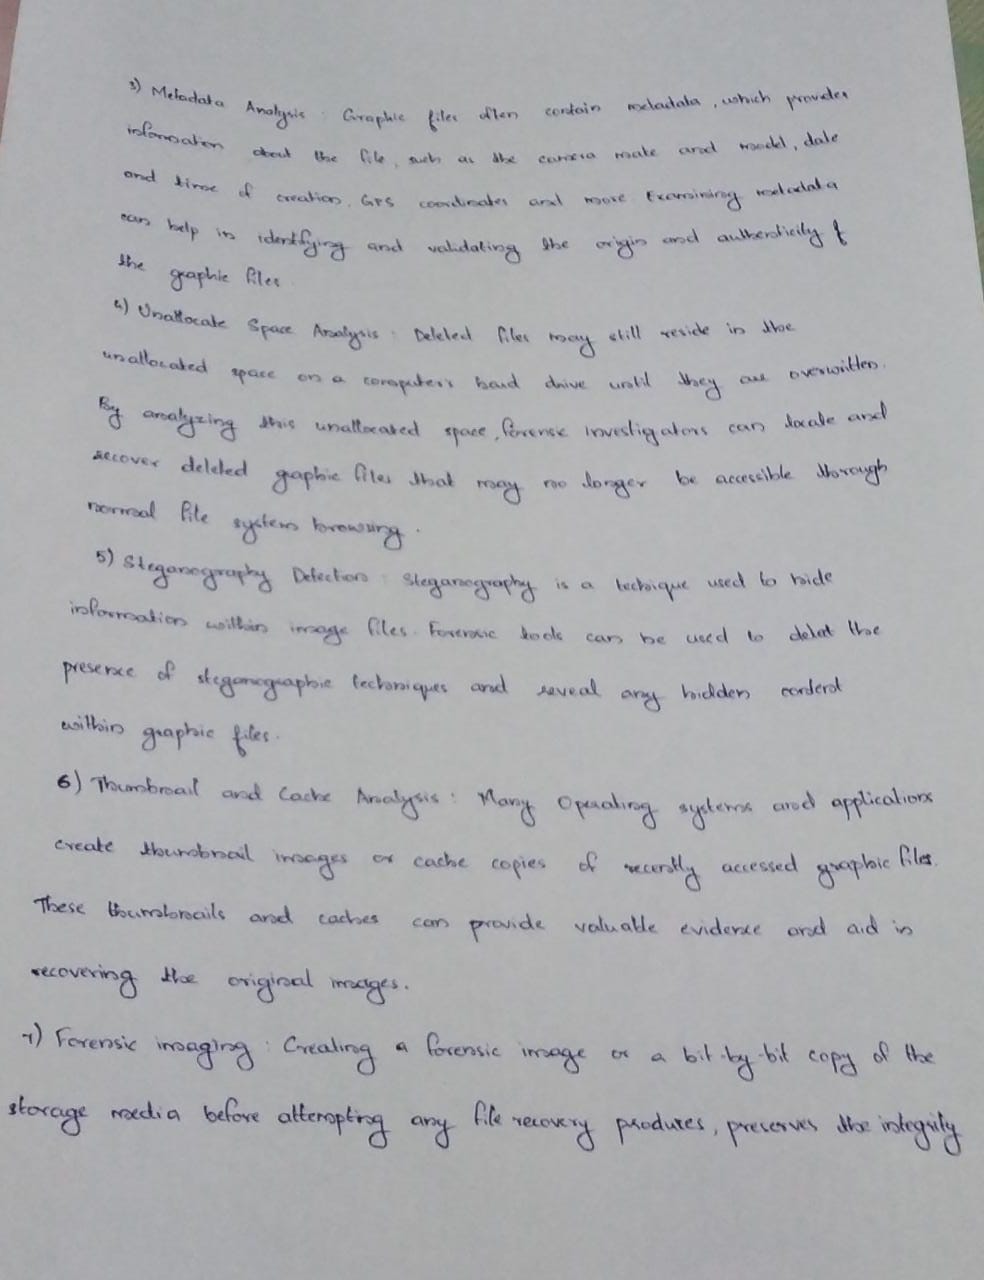 3) Metadata Analysis : Graphic files often contain metadata, which provides
information about the file, such as the camera make and model, date
and time of creation, GPS coordinates and more. Examining metadata
can help in identifying and validating the origin and authenticity of
the graphic files
4) Unallocate Space Analysis : Deleted files may still reside in the
unallocated space on a computer's hard drive until they are overwritten.
By analyzing this unallocated space, forensic investigators can locate and
recover deleted graphic files that may no longer be accessible through
normal file system browsing.
5) Steganography Detection : Steganography is a technique used to hide
information within image files. Forensic tools can be used to detect the
presence of steganographic techniques and reveal any hidden content
within graphic files.
6) Thumbnail and Cache Analysis : Many Operating systems and applications
create thumbnail images or cache copies of recently accessed graphic files.
These thumbnails and caches can provide valuable evidence and aid in
recovering the original images.
7) Forensic imaging : Creating a forensic image or a bit-by-bit copy of the
storage media before attempting any file recovery produres, preserves the integrity